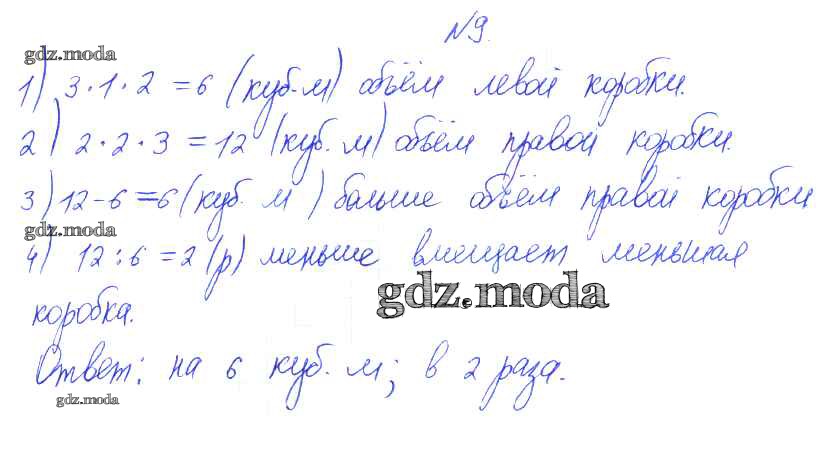 №9.
gdz.moda
1) 3·1·2 =6 (куб.м) объём левой коробки.
2) 2·2·3 =12 (куб.м) объём правой коробки.
3) 12-6=6 (куб. м) больше объём правой коробки
gdz.moda
4) 12:6=2 (р) меньше вмещает меньшая
gdz.moda
коробка.
Ответ: на 6 куб. м; в 2 раза.
gdz.moda